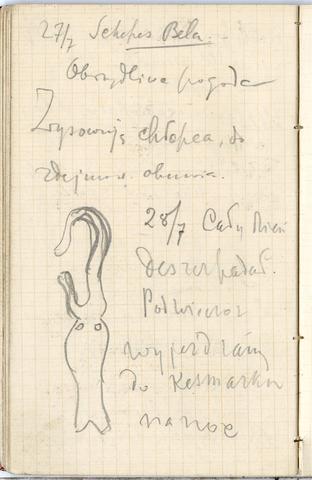 27/7 Schepes Béla.
Obrzydliwa pogoda
Zrysowuję chłopca, do
zdejmow. obuwia.
28/7 Cały dzień
deszcz padał.
Podwieczor
wyjeżdżamy
do Kesmarku
na noc